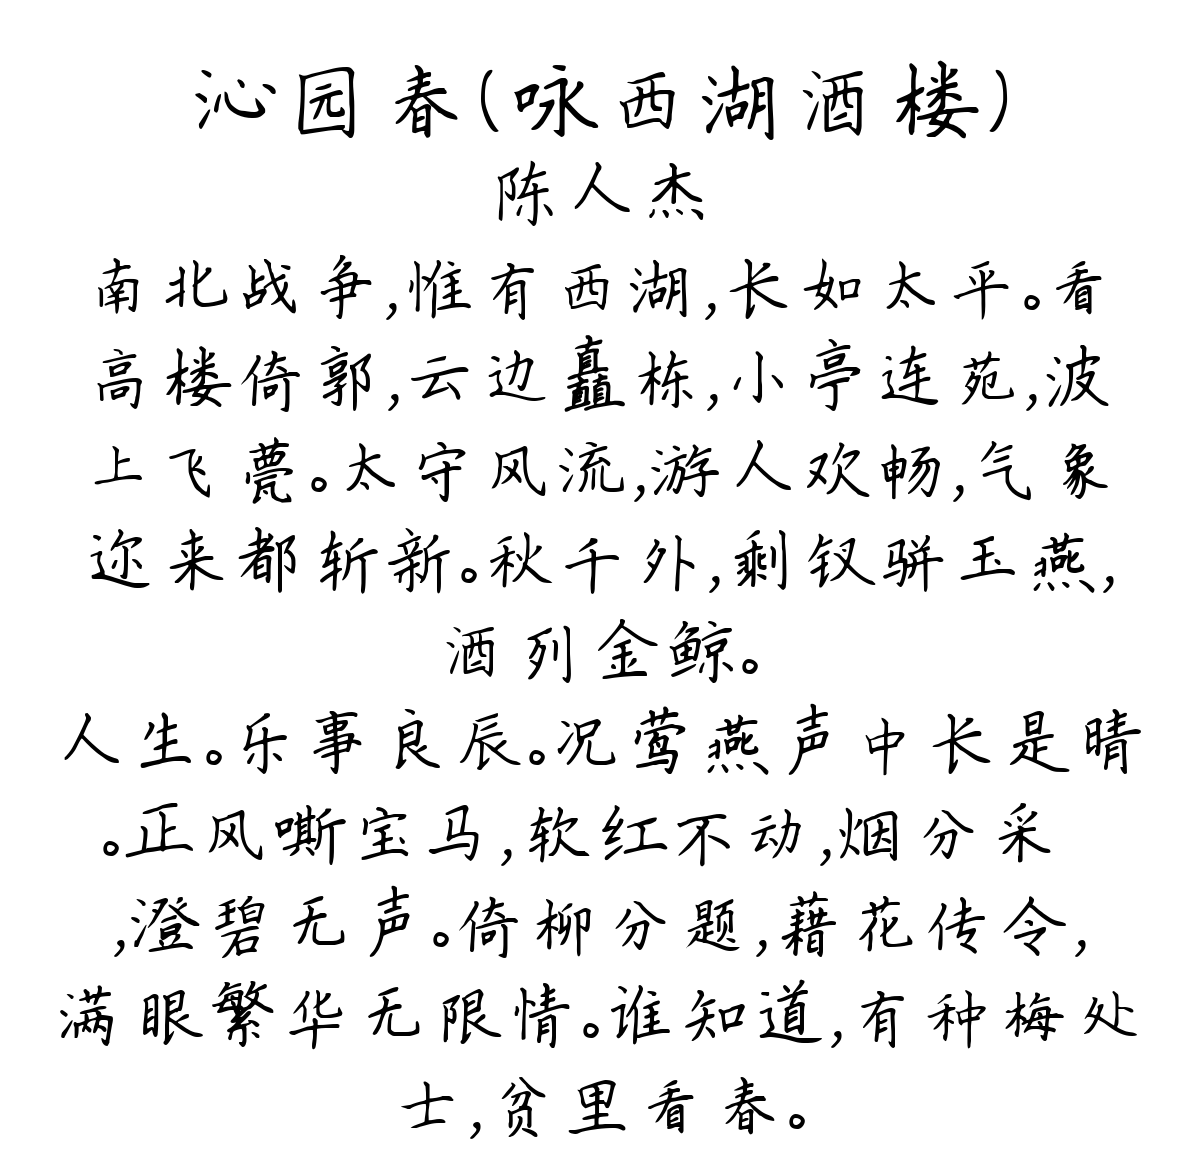 沁园春(咏西湖酒楼)
陈人杰
南北战争,惟有西湖,长如太平。看
高楼倚郭,云边矗栋,小亭连苑,波
上飞甍。太守风流,游人欢畅,气象
迩来都斩新。秋千外,剩钗骈玉燕,
酒列金鲸。
人生。乐事良辰。况莺燕声中长是晴
。正风嘶宝马,软红不动,烟分采
,澄碧无声。倚柳分题,藉花传令,
满眼繁华无限情。谁知道,有种梅处
士,贫里看春。